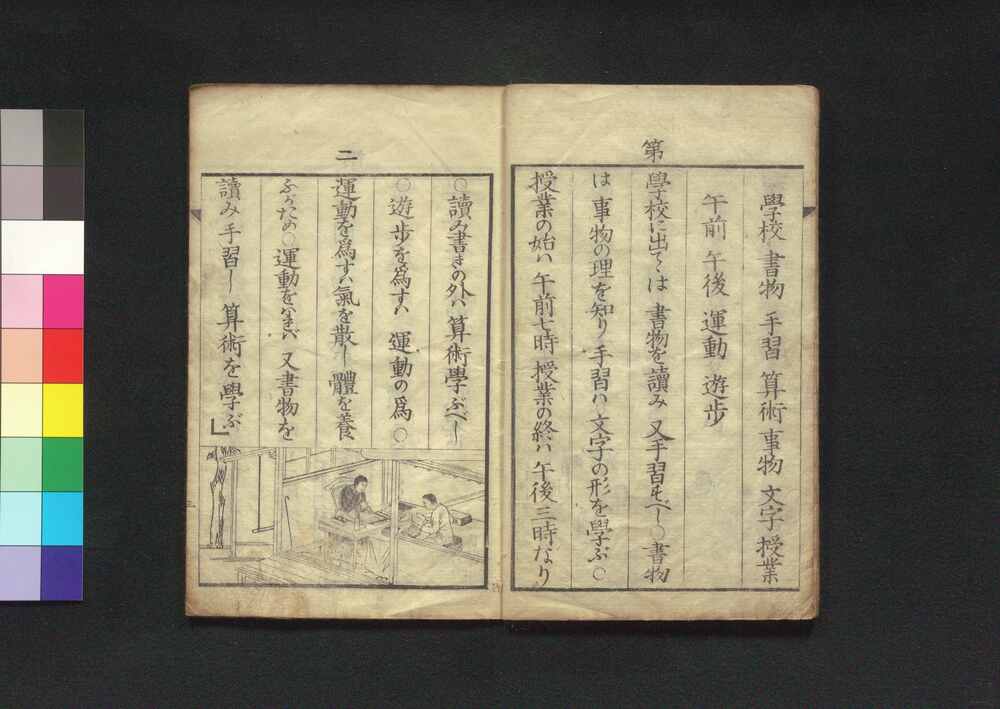 第
學校 書物 手習 算術 事物 文字 授業
午前 午後 運動 遊歩
學校に出ては 書物を讀み 又手習すべし○書物
は 事物の理を知り 手習ハ 文字の形を學ぶ○
授業の始ハ 午前七時 授業の終ハ 午後三時なり
二
○讀み書きの外ハ 算術學ぶべし
○遊歩を爲すハ 運動の爲 ○
運動を爲すハ 氣を散し 體を養
ふがため○運動をなさバ 又書物を
讀み 手習し 算術を學ぶ」